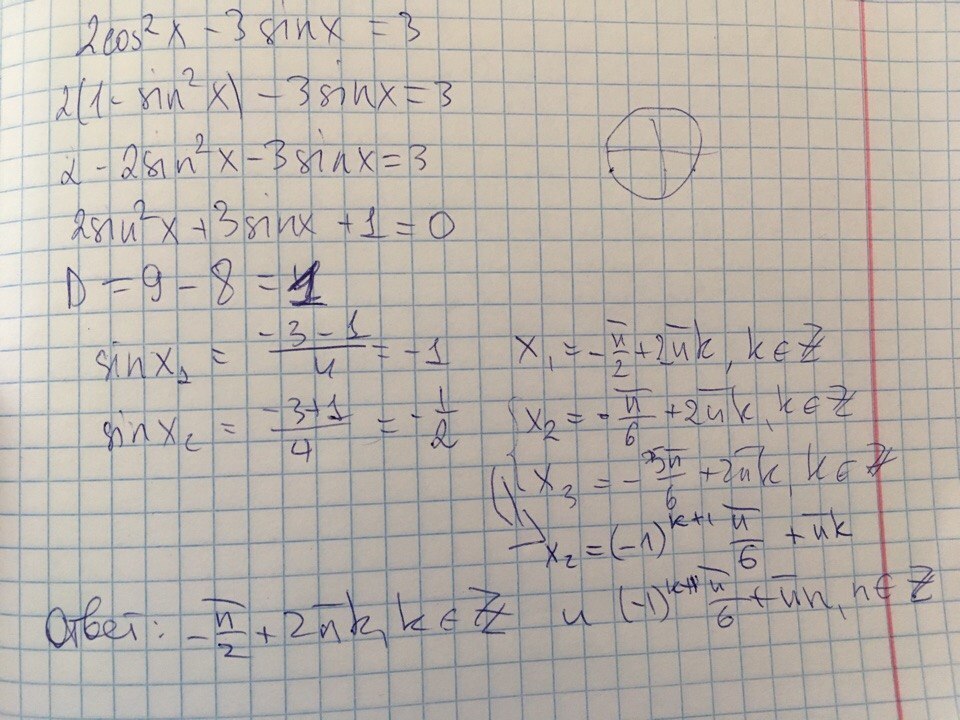 2cos²x - 3sinx = 3
2(1 - sin²x) - 3sinx = 3
2 - 2sin²x - 3sinx = 3
2sin²x + 3sinx + 1 = 0
D = 9 - 8 = 1
sinx₁ = (-3 - 1)/4 = -1    x₁ = -π/2 + 2πk, k ∈ ℤ
sinx₂ = (-3+1)/4 = -1/2    x₂ = -π/6 + 2πk, k ∈ ℤ
x₃ = -5π/6 + 2πk, k ∈ ℤ
x₂ = (-1)^(k+1) π/6 + πk
Ответ: -π/2 + 2πk, k ∈ ℤ и (-1)^(k+1) π/6 + πn, n ∈ ℤ